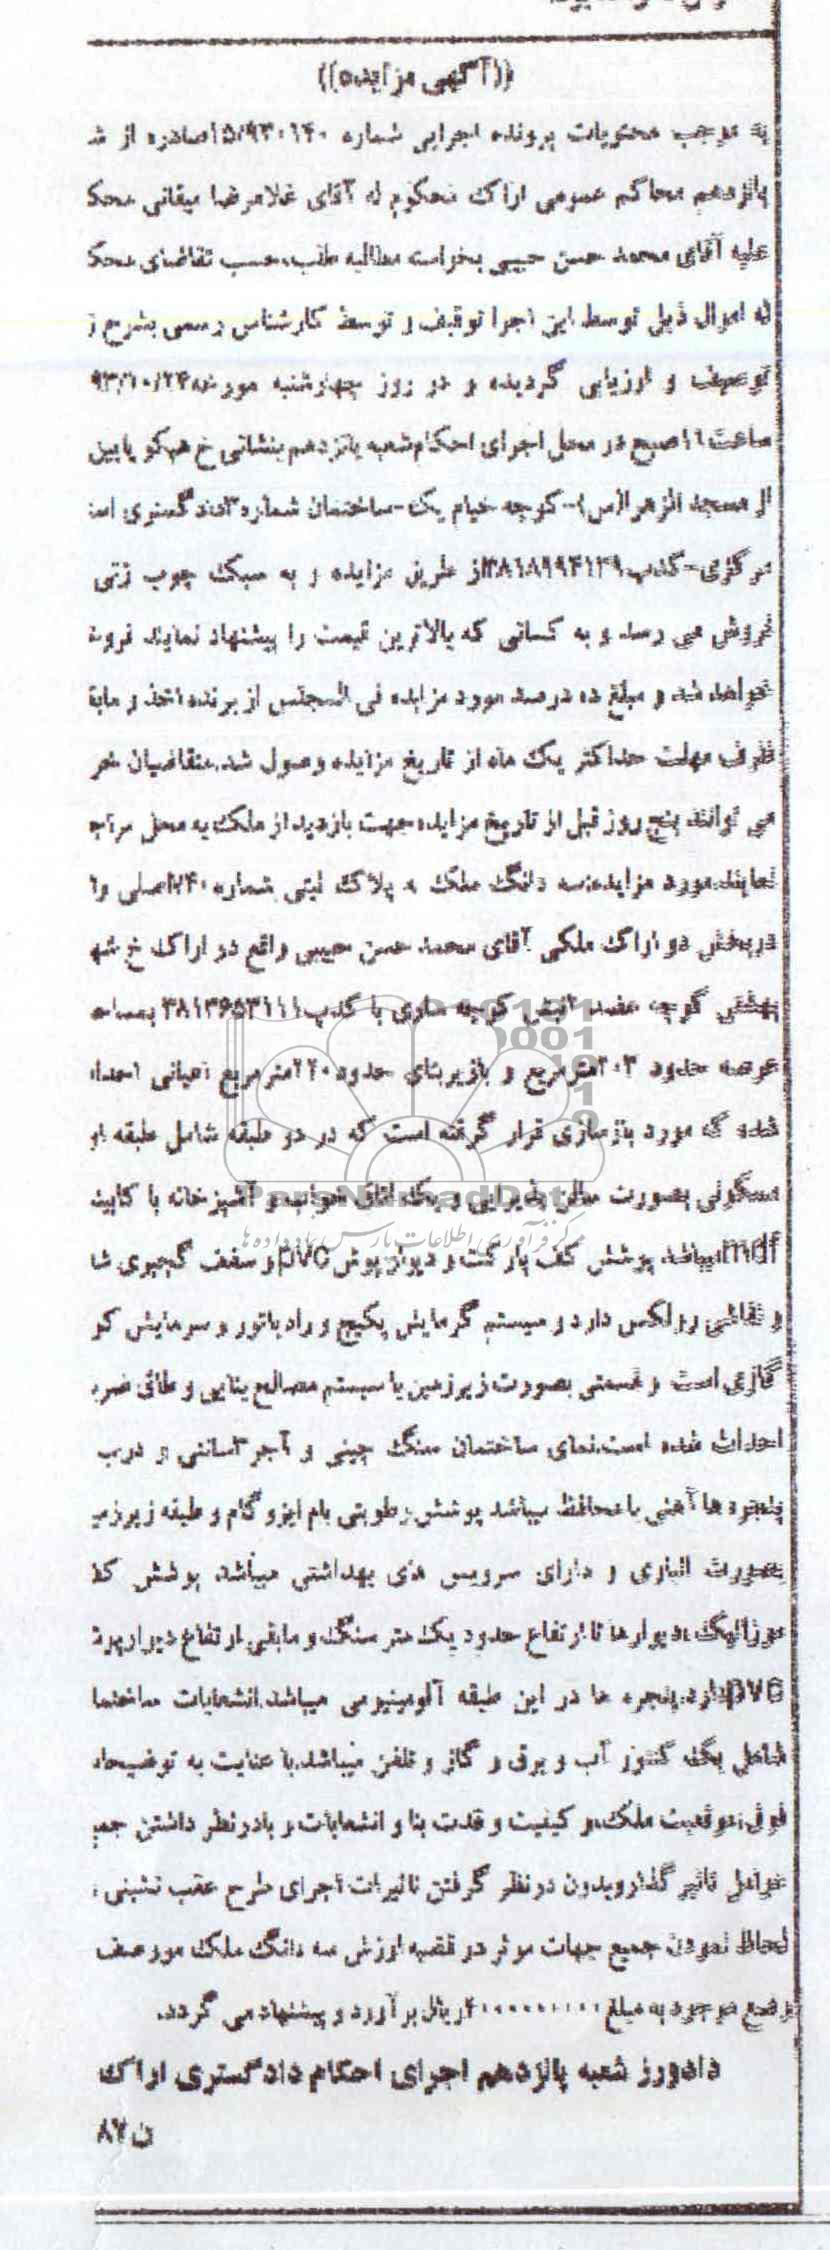 ((آگهی مزایده))
به موجب محتویات پرونده اجرایی شماره ۱۵/۹۳۰۱۴۰صادره از
پانزدهم محاکم عمومی اراک محکوم له آقای غلامرضا میقانی محک
علیه آقای محمد حسن حبیبی بخواسته مطالبه طلب،حسب تقاضای محک
له اموال ذیل توسط این اجرا توقیف و توسط کارشناس رسمی بشرح
توصیف و ارزیابی گردیده و در روز چهارشنبه مورخه۹۳/۱۰/۲۴
ساعت۱۱صبح در محل اجرای احکام شعبه پانزدهم بنشانی خ هپکو پایین
از مسجد الزهرا(س)-کوچه خیام یک-ساختمان شماره۳دادگستری است
مرکزی-کدپ۳۸۱۸۹۹۴۱۳۹از طریق مزایده و به سبک چوب زنی
فروش می رسد و به کسانی که بالاترین قیمت را پیشنهاد نمایند فروخ
خواهد شد و مبلغ ده درصد مورد مزایده فی المجلس از برنده اخذ و مابق
ظرف مهلت حداکثر یک ماه از تاریخ مزایده وصول شد.متقاضیان خر
می توانند پنج روز قبل از تاریخ مزایده جهت بازدید از ملک به محل مراج
نمایند.مورد مزایده:سه دانگ ملک به پلاک ثبتی شماره اصلی
دربخش دو اراک ملکی آقای محمد حسن حبیبی واقع در اراک خ شه
بهشتی کوچه نبش کوچه با کدپ۳۸۱۳۶۵۳۱۱۱ بمساح
عرصه حدود ۳۰۳مترمربع و بازیربنای حدود۲۲۰مترمربع اعیانی احدا
شده که مورد بازسازی قرار گرفته است که در دو طبقه شامل طبقه او
مسکونی بصورت سالن پذیرایی و یک اتاق خواب و آشپزخانه با کابینت
mdfمیباشد پوشش کف پارکت و دیوار پوش pvcو سقف گچبری
و نقاشی رولکس دارد و سیستم گرمایش پکیج و رادیاتور و سرمایش کو
گازی است و قسمتی بصورت زیرزمین با سیستم مصالح بنایی و طاق ضرب
احداث شده است.نمای ساختمان سنگ چینی و آجر۳سانتی و درب
پنجره ها آهنی با محافظ میباشد پوشش رطوبتی بام ایزوگام و طبقه زیرزمی
بصورت انباری و دارای سرویس های بهداشتی میباشد. پوشش کف
موزائیک،دیوارها تا ارتفاع حدود یک متر سنگ و مابقی ارتفاع دیوارپوش
pvcدارد.پنجره ها در این طبقه آلومینیومی میباشد.انشعابات ساختما
شامل یک کنتور آب و برق و گاز و تلفن میباشد.با عنایت به توضیحات
فوق،موقعیت ملک،و کیفیت و قدمت بنا و انشعابات و بادرنظر داشتن جمی
عوامل تاثیر گذاروبدون درنظر گرفتن تاثیرات اجرای طرح عقب نشینی
لحاظ نمودن جمیع جهات موثر در قضیه ارزش سه دانگ ملک موصف
وضع موجود به مبلغ ریال برآورد و پیشنهاد می گردد.
دادورز شعبه پانزدهم اجرای احکام دادگستری اراک
ن۸۷
ParsNamadData
مرکز فرآوری اطلاعات پارس نماد داده ها